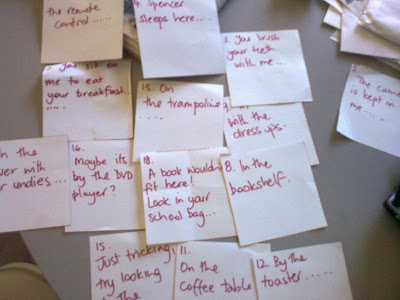 the remote
control.....
4. Spencer
sleeps here....
3. You brush
your teeth
with me....
The came
is kept in
me.....
you sit on
me to eat
your breakfast..
.....
13. On
the trampoline...
....
with the
dress ups.
in the
wer with
r undies...
16.
Maybe its
by the DVD
player?
18.
A book wouldn't
fit here!
Look in your
school bag...
8. In the
bookshelf.
15.
Just tricking,
try looking
the
11.
On the
coffee table
12. By the
toaster.....